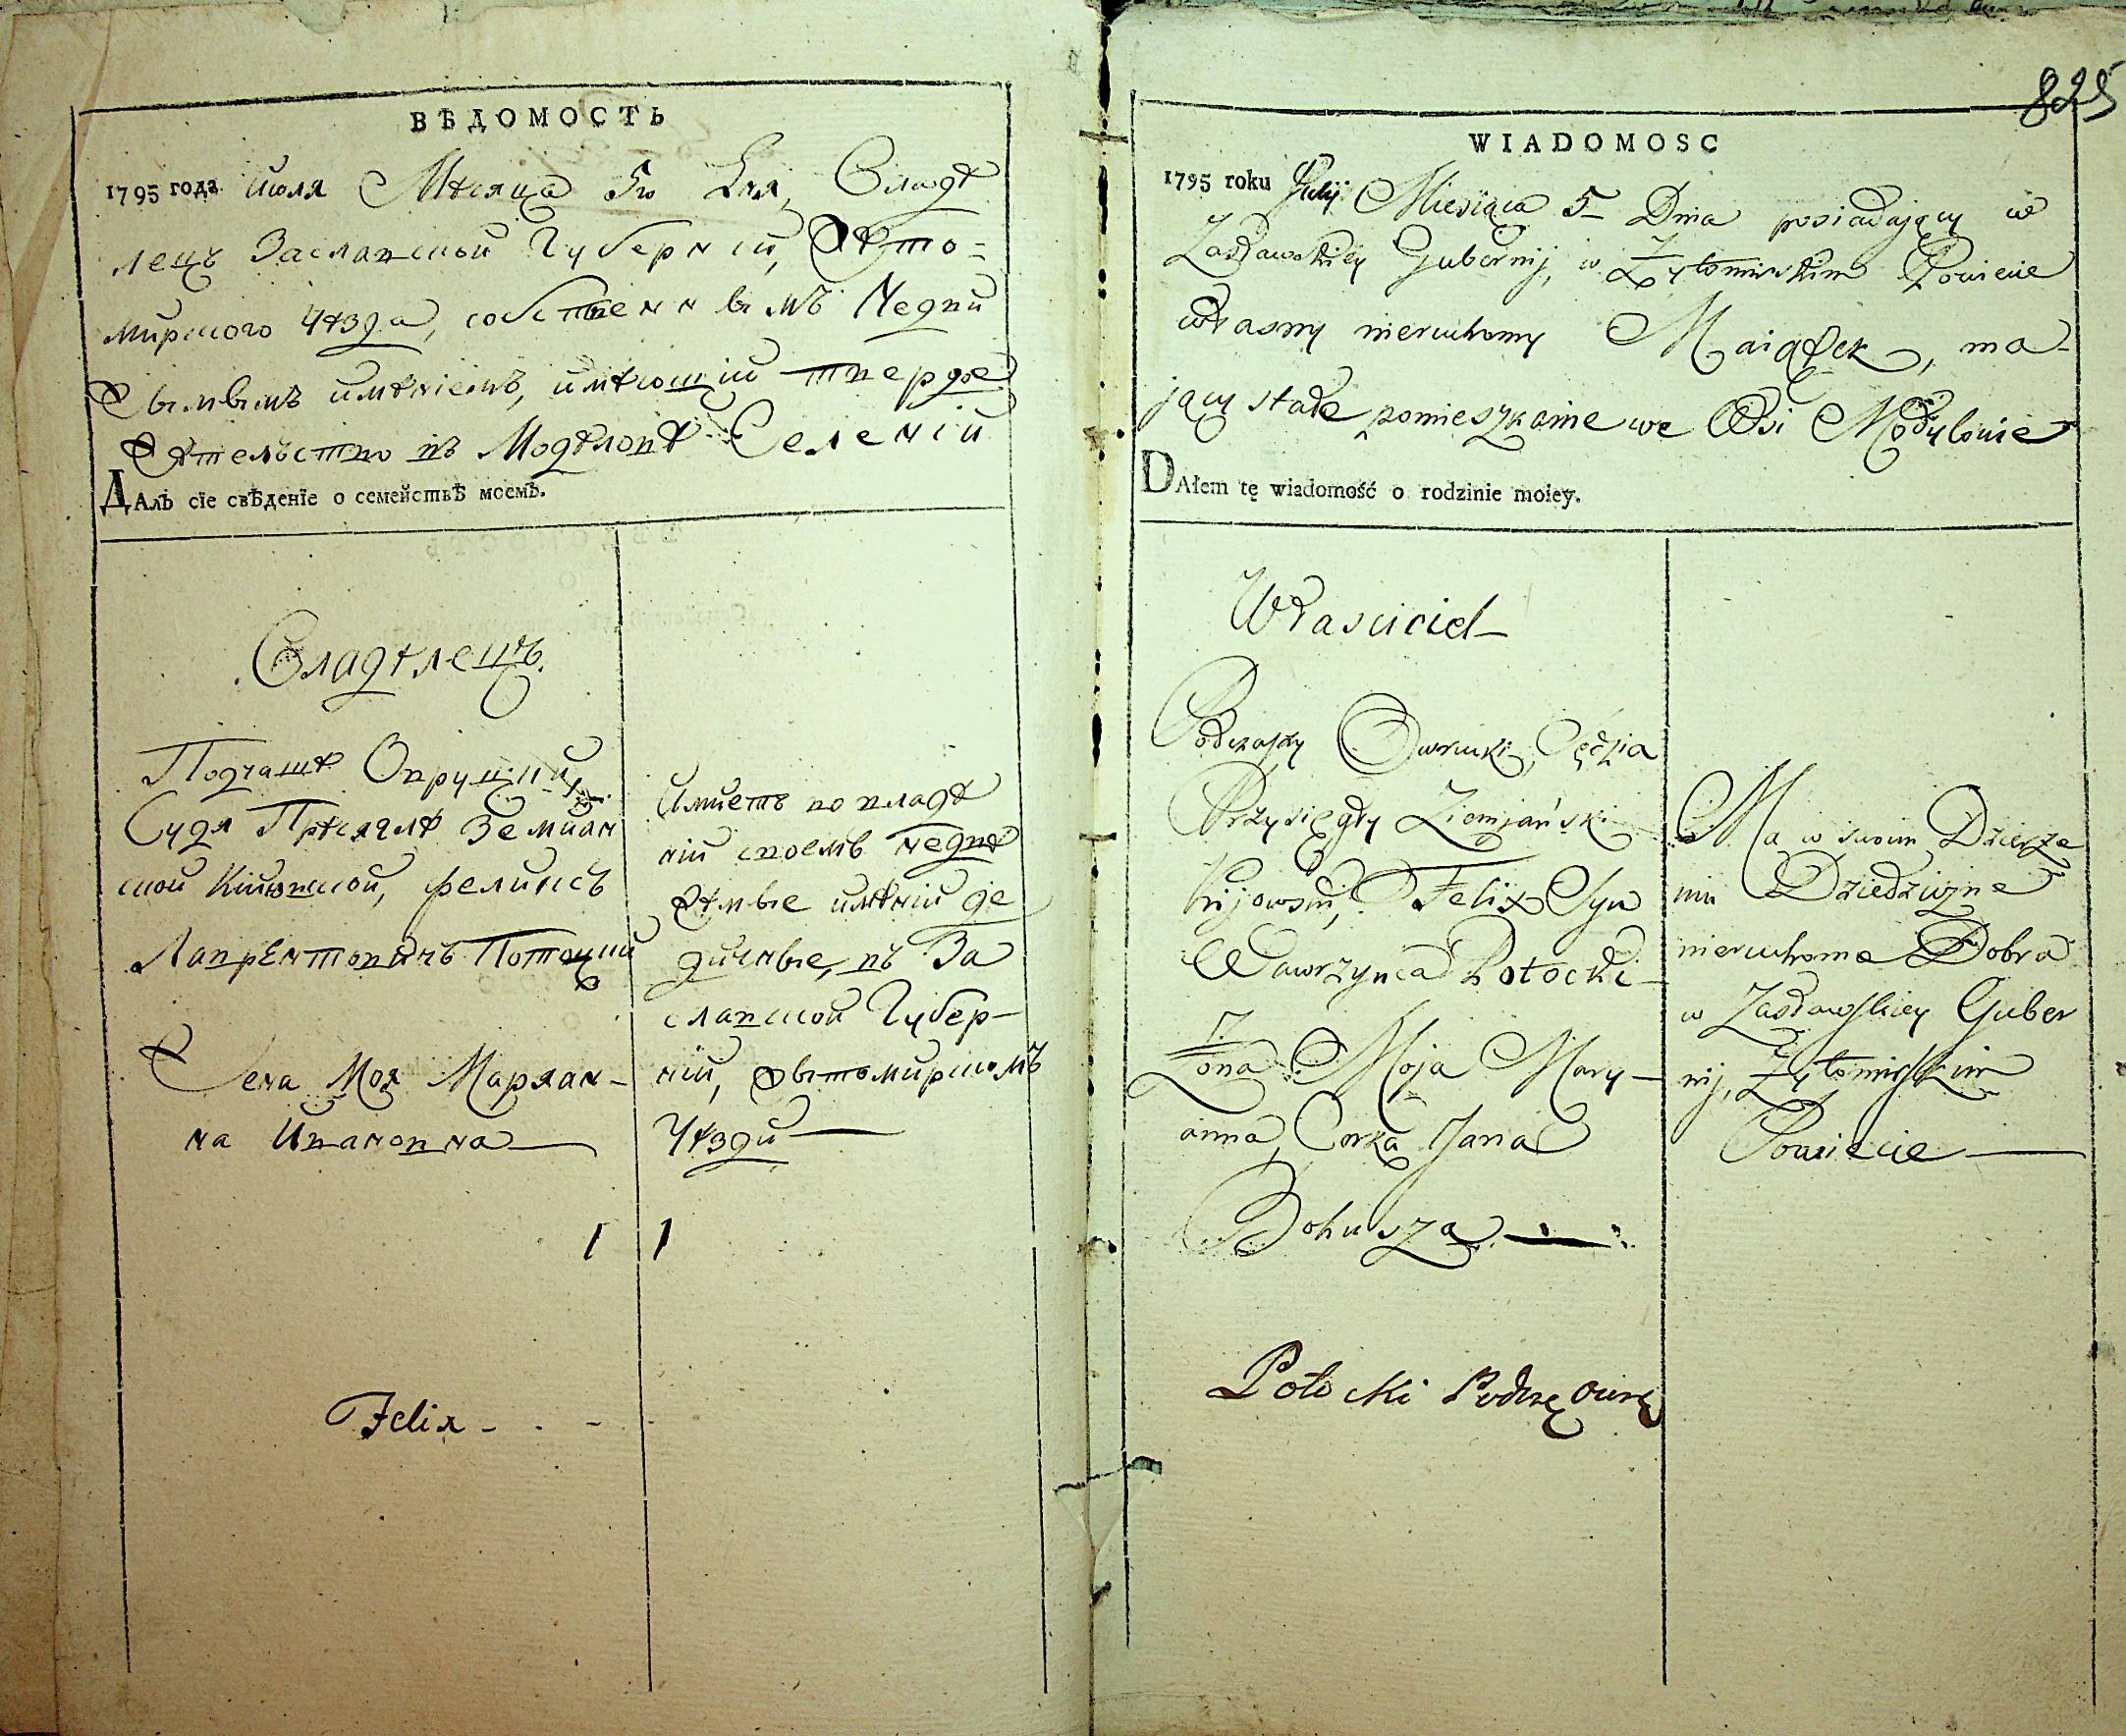 ВѢДОМОСТЬ
1795 года июля Мѣсяца 5го Дня, Владѣ
лецъ Заславской Губерніи, Жито=
мирского Уѣзда, собственнымъ Недви
жимымъ имѣніемъ, имѣющій твердое
жителство въ Модѣловѣ Селеніи
ДАлЪ сїе свѢденїе о семействѢ моемЪ.
Владѣлецъ.
Подчашѣ Овруцкій,
Судя Прѣсяглѣ Земиан
ской Кіювской, феликсъ
Лаврентовичъ Потоцкий
Жена Моя Марян-
на Ивановна
имиетъ во владѣ
ніи своемъ недви
жимые имѣніи де
дичные, въ За
славской Губер-
ніи, житомирскомъ
Уѣзди
1 1
Felix
825
WIADOMOSC
1795 roku Julij Miesiąca 5 Dnia posiadający w
Zasławskiey Gubernij, w Żytomirskim Powiecie
własny nieruchomy Maiątek, ma-
jący stałe pomieszkanie we Wsi Modylowie
DAłem tę wiadomość o rodzinie moiey.
Własciciel
Podczaszy Owrucki, Sędzia
Przysięgły Ziemjański
Kijowski, Felix Syn
Wawrzynca Potocki
Żona Moja Mary-
anna, Corka Jana
Bohusza
Ma w swoim Dzierże
niu Dziedziczne
nieruchome Dobra
w Zasławskiey Guber
nij, Żytomirskim
Powiecie
Potocki